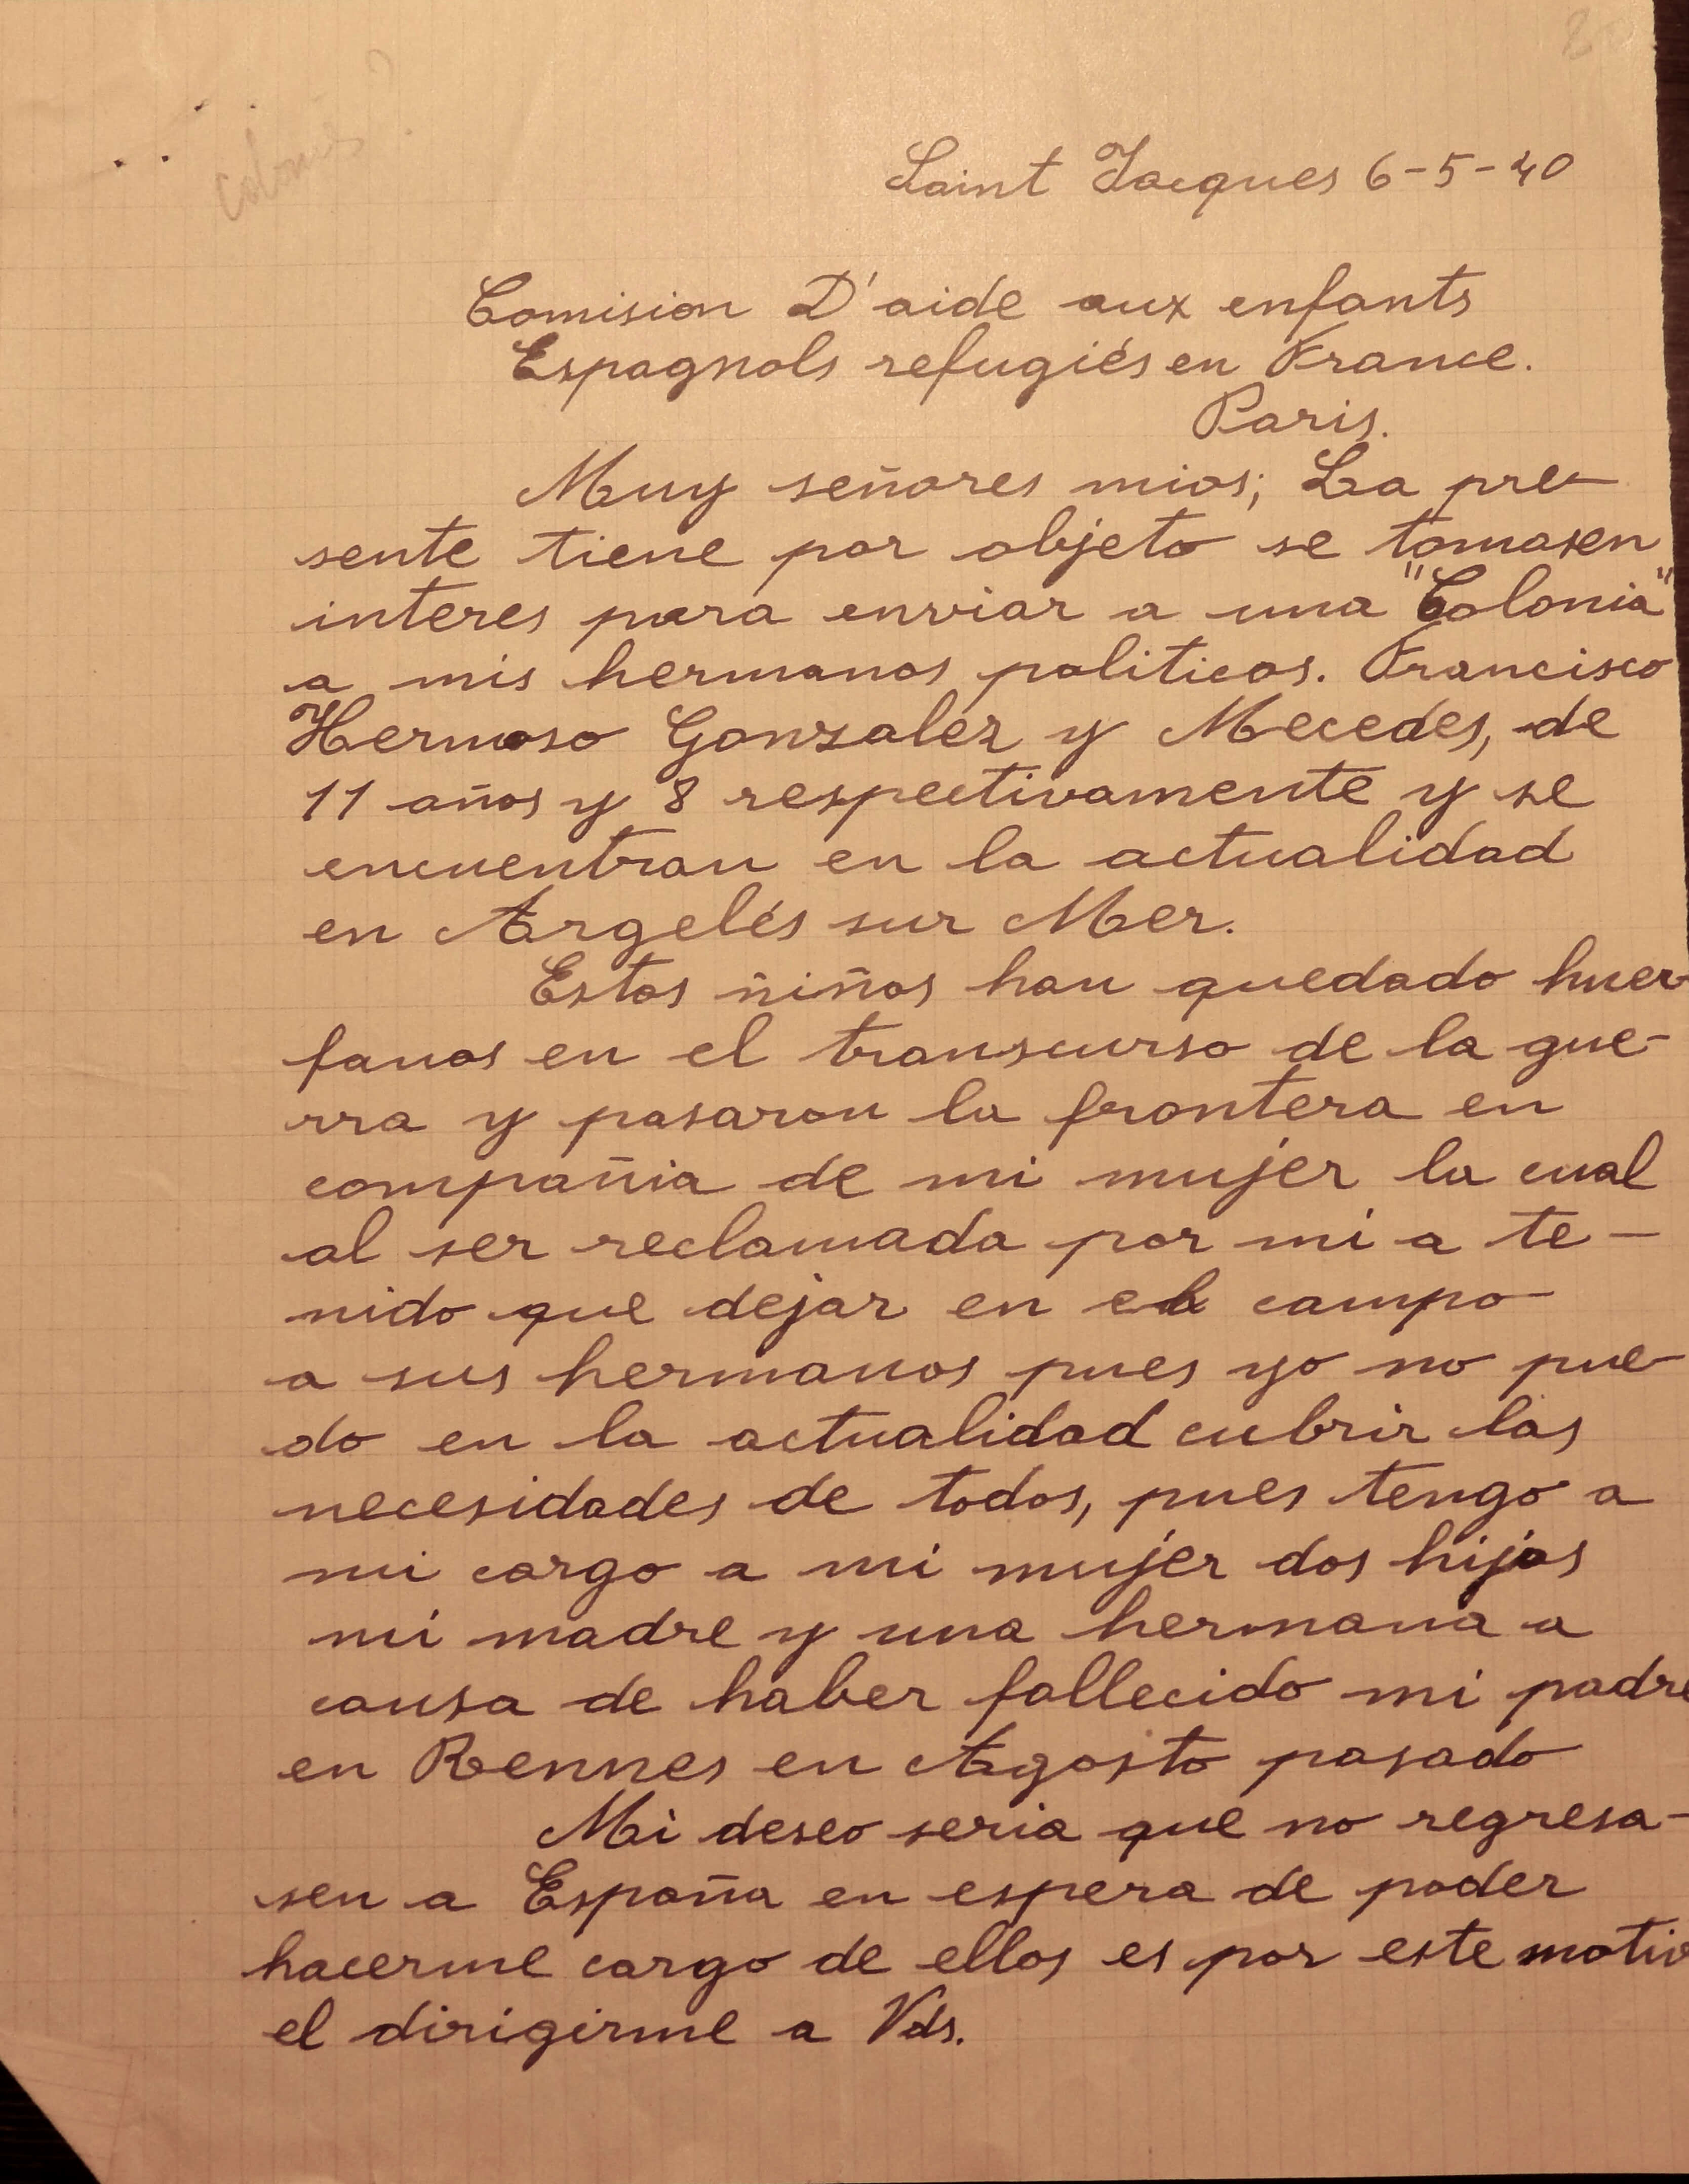 Saint Jacques 6-5-40
Comision D'aide aux enfants
Espagnols refugiés en France.
Paris.
Muy señores mios; La pre-
sente tiene por objeto se tomasen
interes para enviar a una "Colonia"
a mis hermanos politicos. Francisco
Hermoso Gonzalez y Mecedes, de
11 años y 8 respectivamente y se
encuentran en la actualidad
en Argelés sur Mer.
Estos niños han quedado huer-
fanos en el transcurso de la gue-
rra y pasaron la frontera en
compañia de mi mujer la cual
al ser reclamada por mi a te-
nido que dejar en el campo
a sus hermanos pues yo no pue-
do en la actualidad cubrir las
necesidades de todos, pues tengo a
mi cargo a mi mujer dos hijos
mi madre y una hermana a
causa de haber fallecido mi padre
en Rennes en Agosto pasado
Mi deseo seria que no regresa-
sen a España en espera de poder
hacerme cargo de ellos es por este motiv
el dirigirme a Vds.